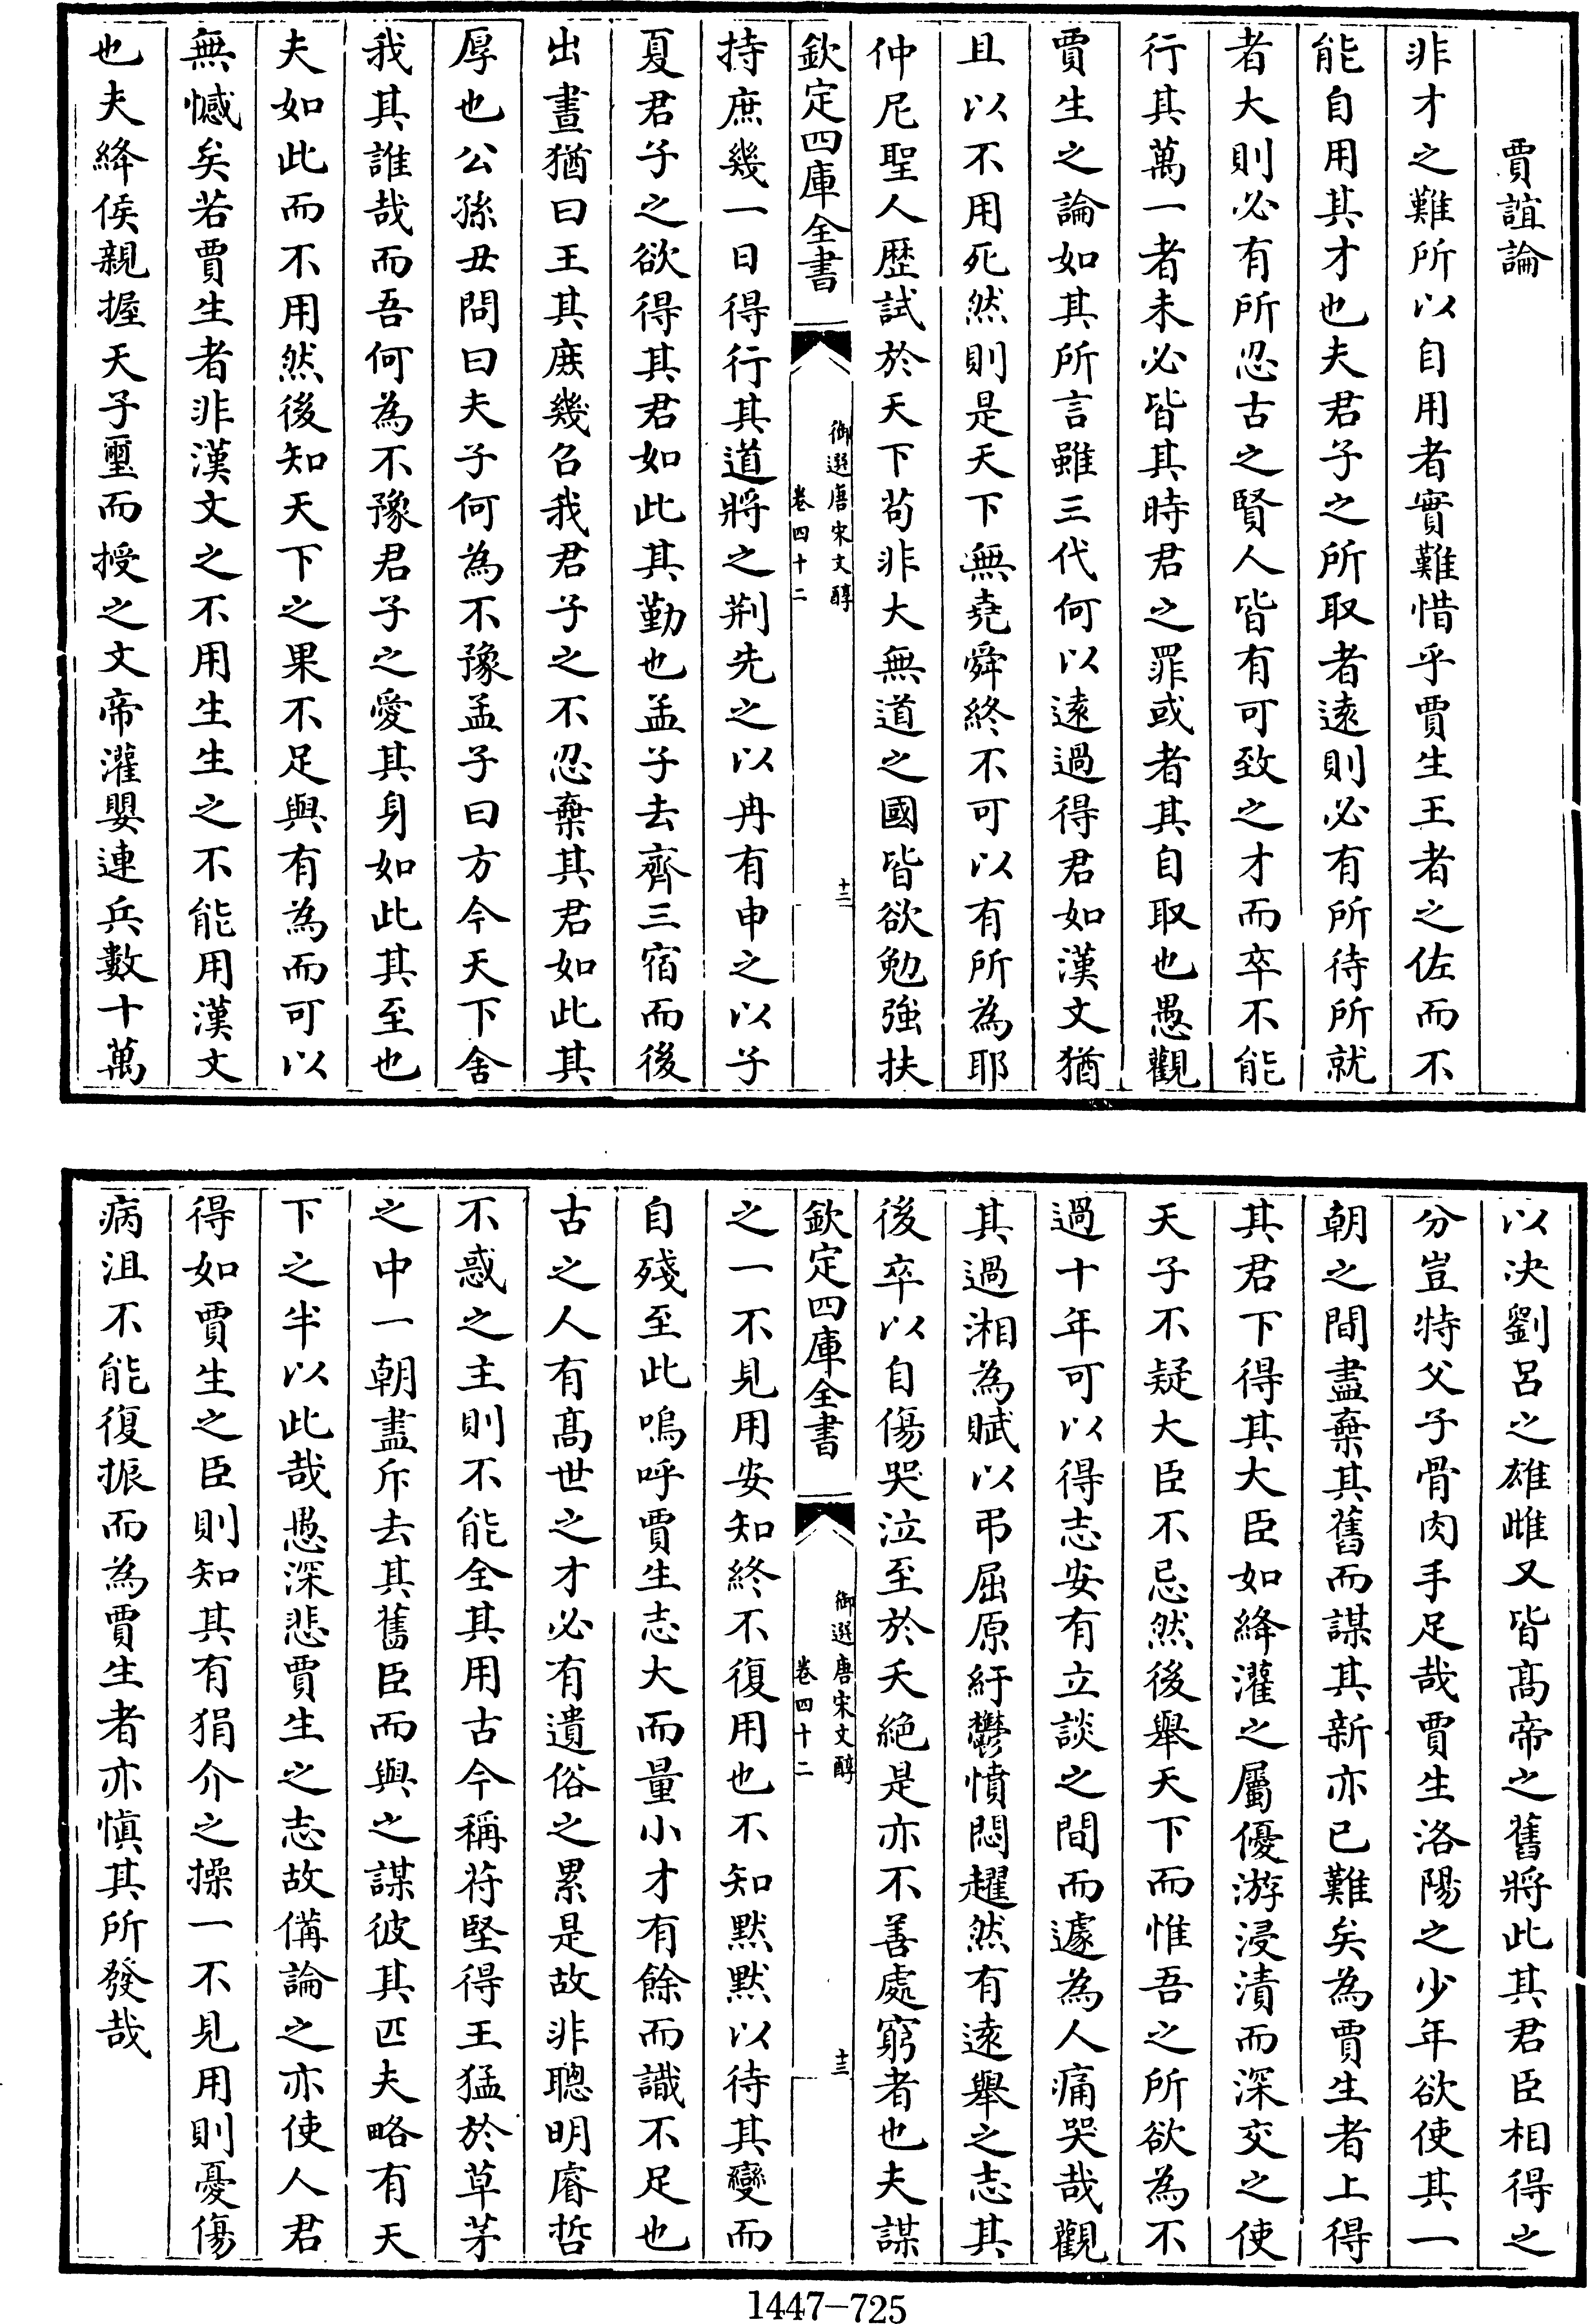 賈誼論
非才之難所以自用者實難惜乎賈生王者之佐而不
能自用其才也夫君子之所取者遠則必有所待所就
者大則必有所忍古之賢人皆有可致之才而卒不能
行其萬一者未必皆其時君之罪或者其自取也愚觀
賈生之論如其所言雖三代何以遠過得君如漢文猶
且以不用死然則是天下無堯舜終不可以有所為耶
仲尼聖人歴試於天下苟非大無道之國皆欲勉強扶
欽定四庫全書
御選唐宋文醇
卷四十二
十二
持庶幾一日得行其道將之荆先之以冉有申之以子
夏君子之欲得其君如此其勤也孟子去齊三宿而後
出晝猶曰王其庶幾召我君子之不忍棄其君如此其
厚也公孫丑問曰夫子何為不豫孟子曰方今天下舍
我其誰哉而吾何為不豫君子之愛其身如此其至也
夫如此而不用然後知天下之果不足與有為而可以
無憾矣若賈生者非漢文之不用生生之不能用漢文
也夫絳侯親握天子璽而授之文帝灌嬰連兵數十萬
以决劉呂之雄雌又皆髙帝之舊將此其君臣相得之
分豈特父子骨肉手足哉賈生洛陽之少年欲使其一
朝之間盡棄其舊而謀其新亦已難矣為賈生者上得
其君下得其大臣如絳灌之屬優游浸漬而深交之使
天子不疑大臣不忌然後舉天下而惟吾之所欲為不
過十年可以得志安有立談之間而遽為人痛哭哉觀
其過湘為賦以弔屈原紆鬱憤悶趯然有遠舉之志其
後卒以自傷哭泣至於夭絕是亦不善處窮者也夫謀
欽定四庫全書
御選唐宋文醇
卷四十二
十三
之一不見用安知終不復用也不知默默以待其變而
自殘至此嗚呼賈生志大而量小才有餘而識不足也
古之人有髙世之才必有遺俗之累是故非聰明睿哲
不惑之主則不能全其用古今稱苻堅得王猛於草茅
之中一朝盡斥去其舊臣而與之謀彼其匹夫略有天
下之半以此哉愚深悲賈生之志故備論之亦使人君
得如賈生之臣則知其有狷介之操一不見用則憂傷
病沮不能復振而為賈生者亦慎其所發哉
1447-725